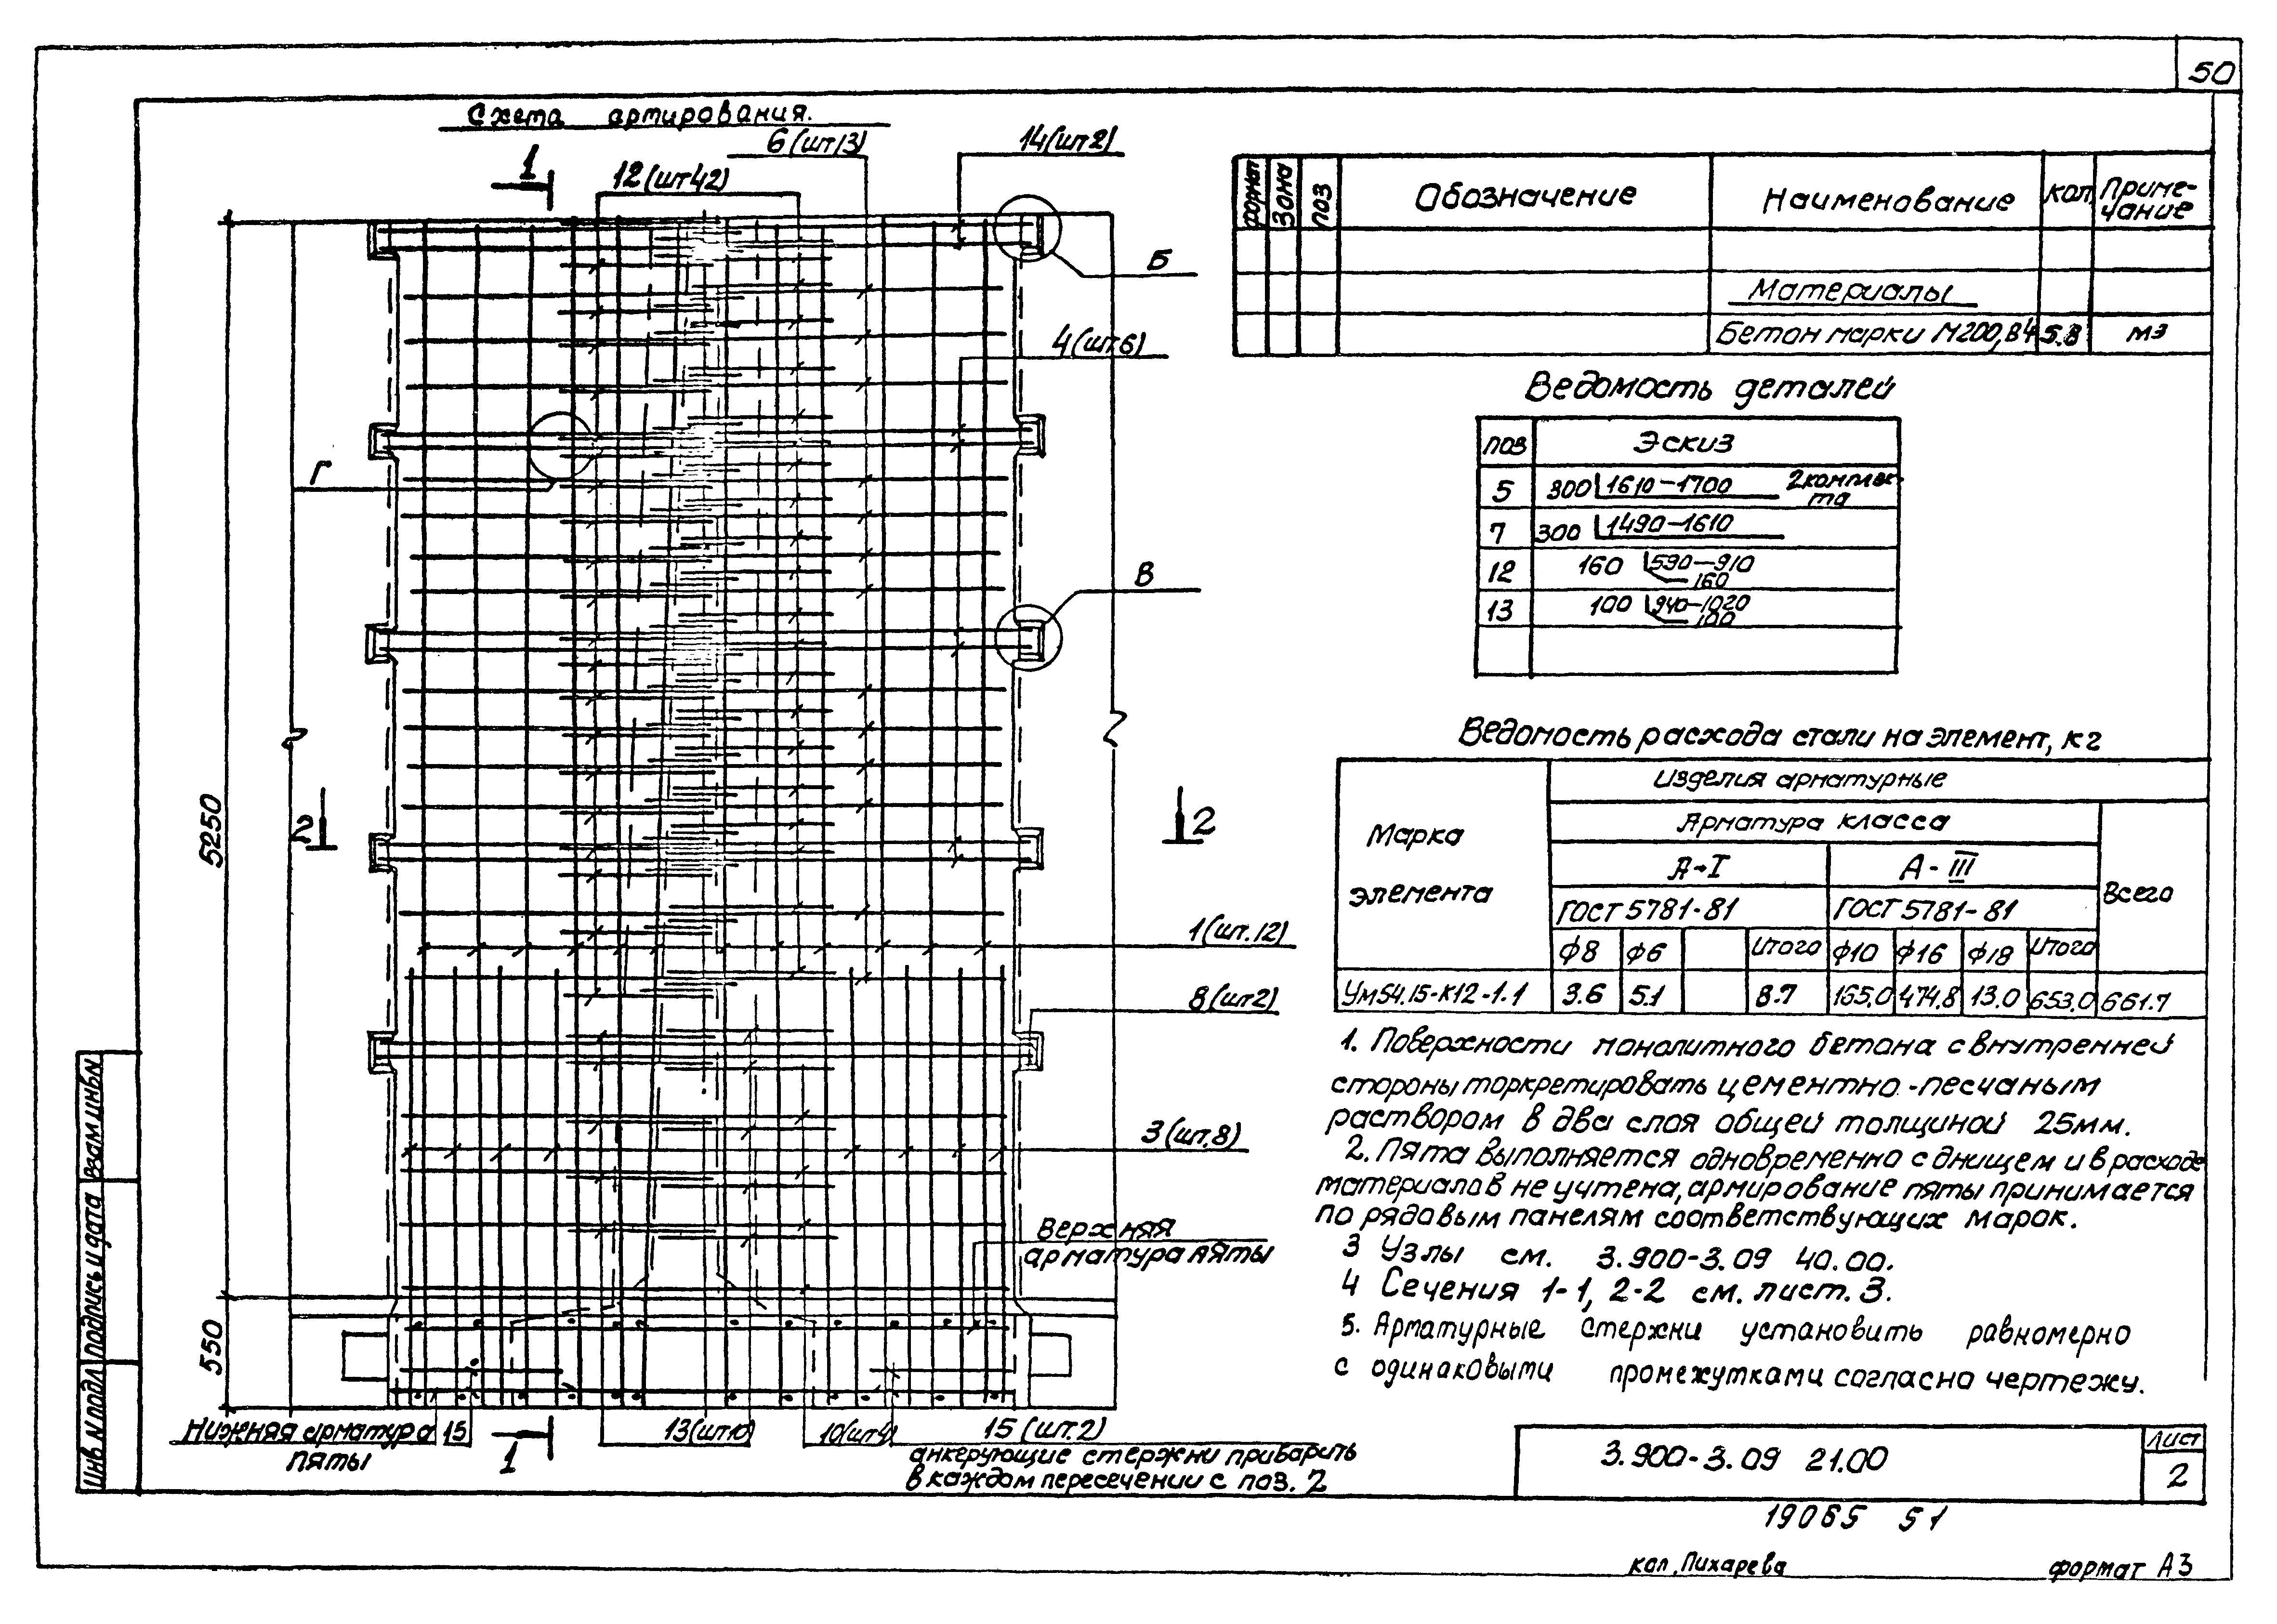 50
Схема армирования.
6 (шт13)
14(шт2)
12(шт42)
1
Б
4(шт6)
Г
В
2
2
5250
1(шт.12)
8(шт2)
3(шт.8)
Верхняя
арматура пяты
550
Нижняя арматура
пяты
15
1
13(шт10)
10(шт4)
15 (шт.2)
анкерующие стержни приварить
в каждом пересечении с поз. 2
Формат Зона Поз Обозначение Наименование Кол. Приме-
чание
Материалы
Бетон марки М200, В4 5.8 м3
Ведомость деталей
Поз Эскиз
5 300 1610-1700 2комплек-
та
7 300 1490-1610
12 160 590-910
160
13 100 940-1020
100
Ведомость расхода стали на элемент, кг
Марка
элемента
Изделия арматурные
Арматура класса
А-I А-III Всего
ГОСТ 5781-81 ГОСТ 5781-81
ф8 ф6 Итого ф10 ф16 ф18 Итого
Ум54.15-К12-1.1 3.6 5.1 8.7 165,0 474,8 13.0 653,0 661.7
1. Поверхности монолитного бетона с внутренней
стороны торкретировать цементно-песчаным
раствором в два слоя общей толщиной 25мм.
2. Пята выполняется одновременно с днищем и в расходе
материалов не учтена, армирование пяты принимается
по рядовым панелям соответствующих марок.
3 Узлы см. 3.900-3.09 40.00.
4 Сечения 1-1, 2-2 см. лист. 3.
5. Арматурные стержни установить равномерно
с одинаковыми промежутками согласно чертежу.
3.900-3.09 21.00
Лист
2
19065 51
кол. Пихарева
формат А3
Инв N подл
Подпись и дата
Взам инв N